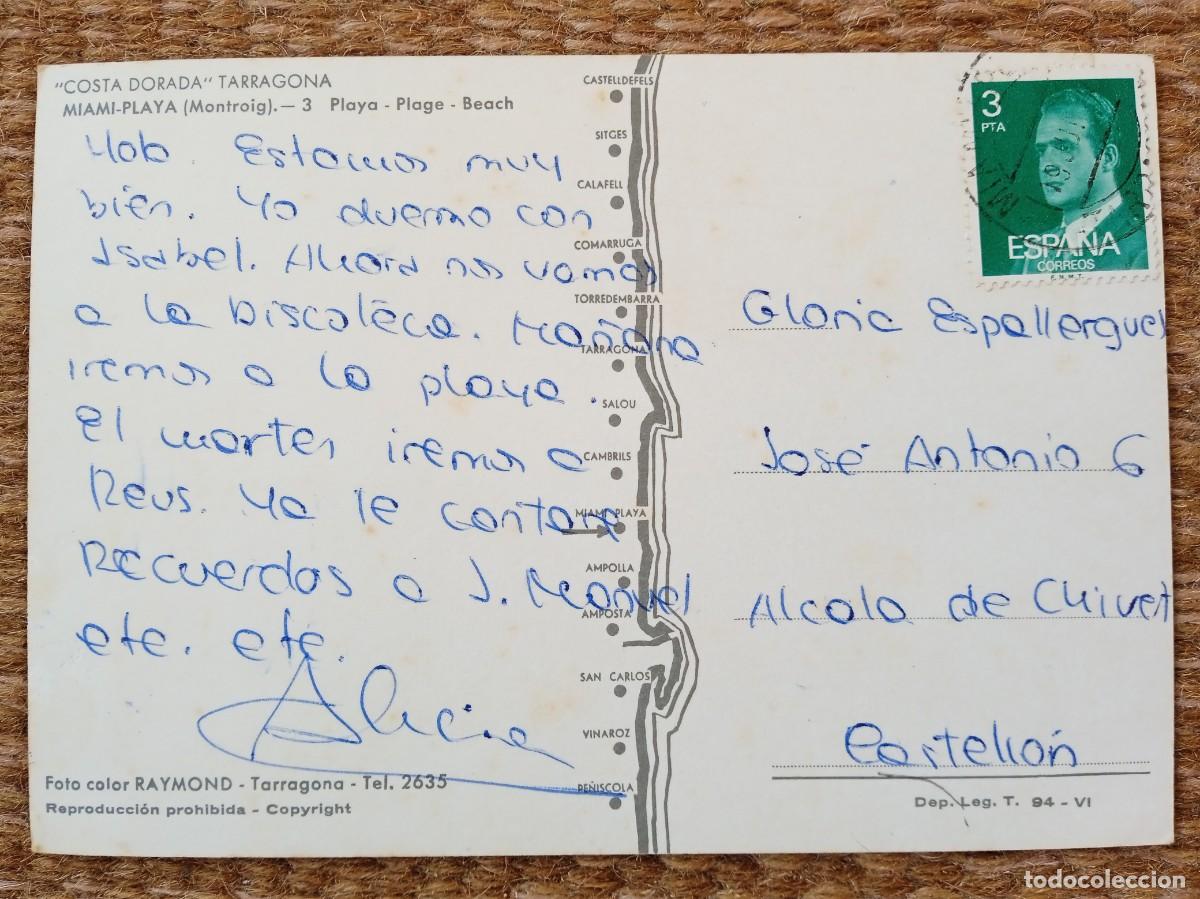 "COSTA DORADA" TARRAGONA
MIAMI-PLAYA (Montroig).— 3 Playa - Plage - Beach
Estamos muy
bien. Yo duermo con
Isabel. Ahora nos vamos
a la Discoteca. Mañana
iremos a la playa.
El martes iremos a
Reus. Ya le contare
Recuerdos a J. Manuel
etc. etc.
Alicia
Foto color RAYMOND - Tarragona - Tel. 2635
Reproducción prohibida - Copyright
CASTELLDEFELS
SITGES
CALAFELL
COMARRUGA
TORREDEMBARRA
TARRAGONA
SALOU
CAMBRILS
MIAMI PLAYA
AMPOLLA
AMPOSTA
SAN CARLOS
VINAROZ
PEÑISCOLA
3
PTA
ESPAÑA
CORREOS
F.N.M.T.
Gloria Espallergues
José Antonio 6
Alcala de Chivert
Castellón
Dep. Leg. T. 94 - VI
todocoleccion